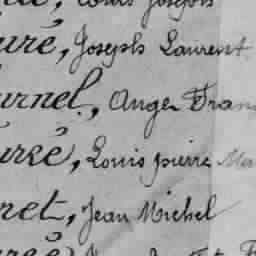 Louis Joseph
uré, Joseph Laurent
urnel, Ange Fran
urgé, Louis pierre Ma
net, Jean Michel